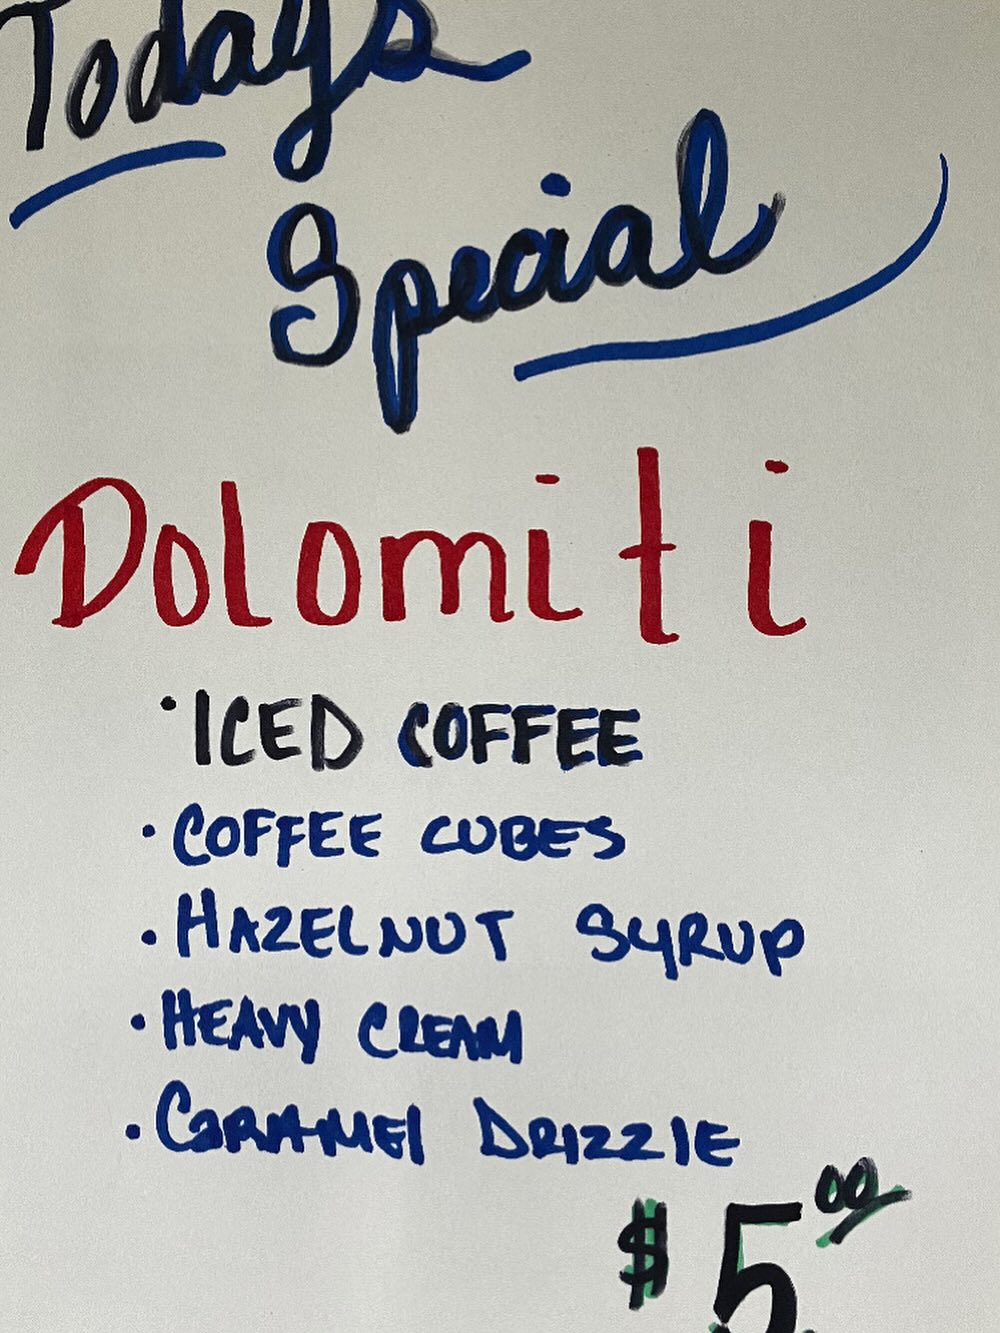 Todays
Special
Dolomiti
• ICED COFFEE
• COFFEE CUBES
• HAZELNUT SYRUP
• HEAVY CREAM
• CARAMEl DRIZZlE
$5.00